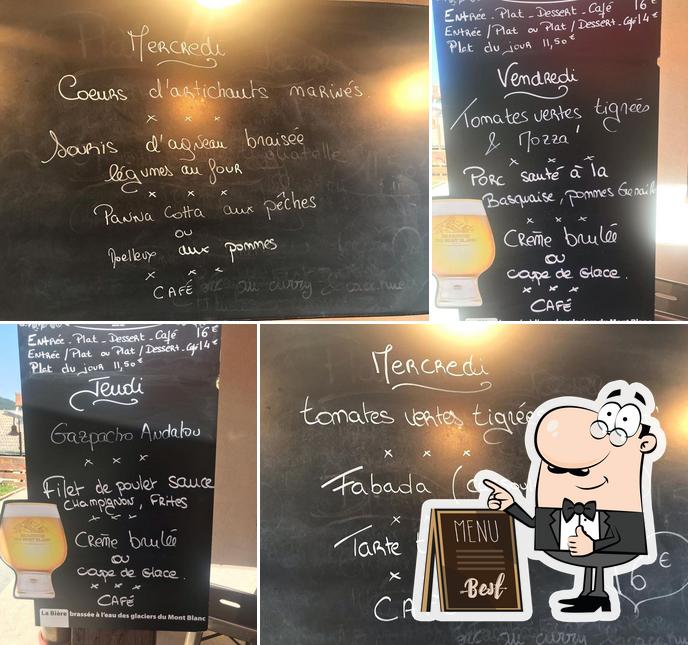 Mercredi
Coeurs d'artichauts marinés.
x x x
Souris d'agneau braisée
légumes au four
x x x
Panna Cotta aux pêches
ou
Moelleux aux pommes
x x x
CAFÉ
Entrée - Plat - Dessert - Café 16 €
Entrée / Plat ou Plat / Dessert - Café 14 €
Plat du jour 11,50 €
Vendredi
Tomates vertes tigrées
& Mozza'
x x x
Porc sauté à la
Basquaise, pommes Grenaille
x x x
Crème brulée
ou
coupe de Glace.
x x x
CAFÉ
Entrée - Plat - Dessert - Café 16 €
Entrée / Plat ou Plat / Dessert - Café 14 €
Plat du jour 11,50 €
Jeudi
Gazpacho Andalou
x x x
Filet de poulet sauce
champignon, frites
x x x
Crème brulée
ou
coupe de Glace.
x x x
CAFÉ
La Bière brassée à l'eau des glaciers du Mont Blanc
Mercredi
tomates vertes tigrée
x x x
Fabada
x
Tarte
x
CA
6 €
MENU
Best